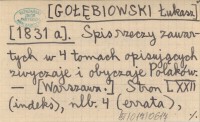 [GOŁĘBIOWSKI Łukasz]
[1831 a]. Spis rzeczy zawar-
tych w 4 tomach opisujących
zwyczaje i obyczaje Polaków.
— [Warszawa.] Stron LXXII
(indeks), nlb. 4 (errata),